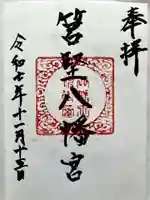 奉拝
筥崎八幡宮
令和七年十一月十三日